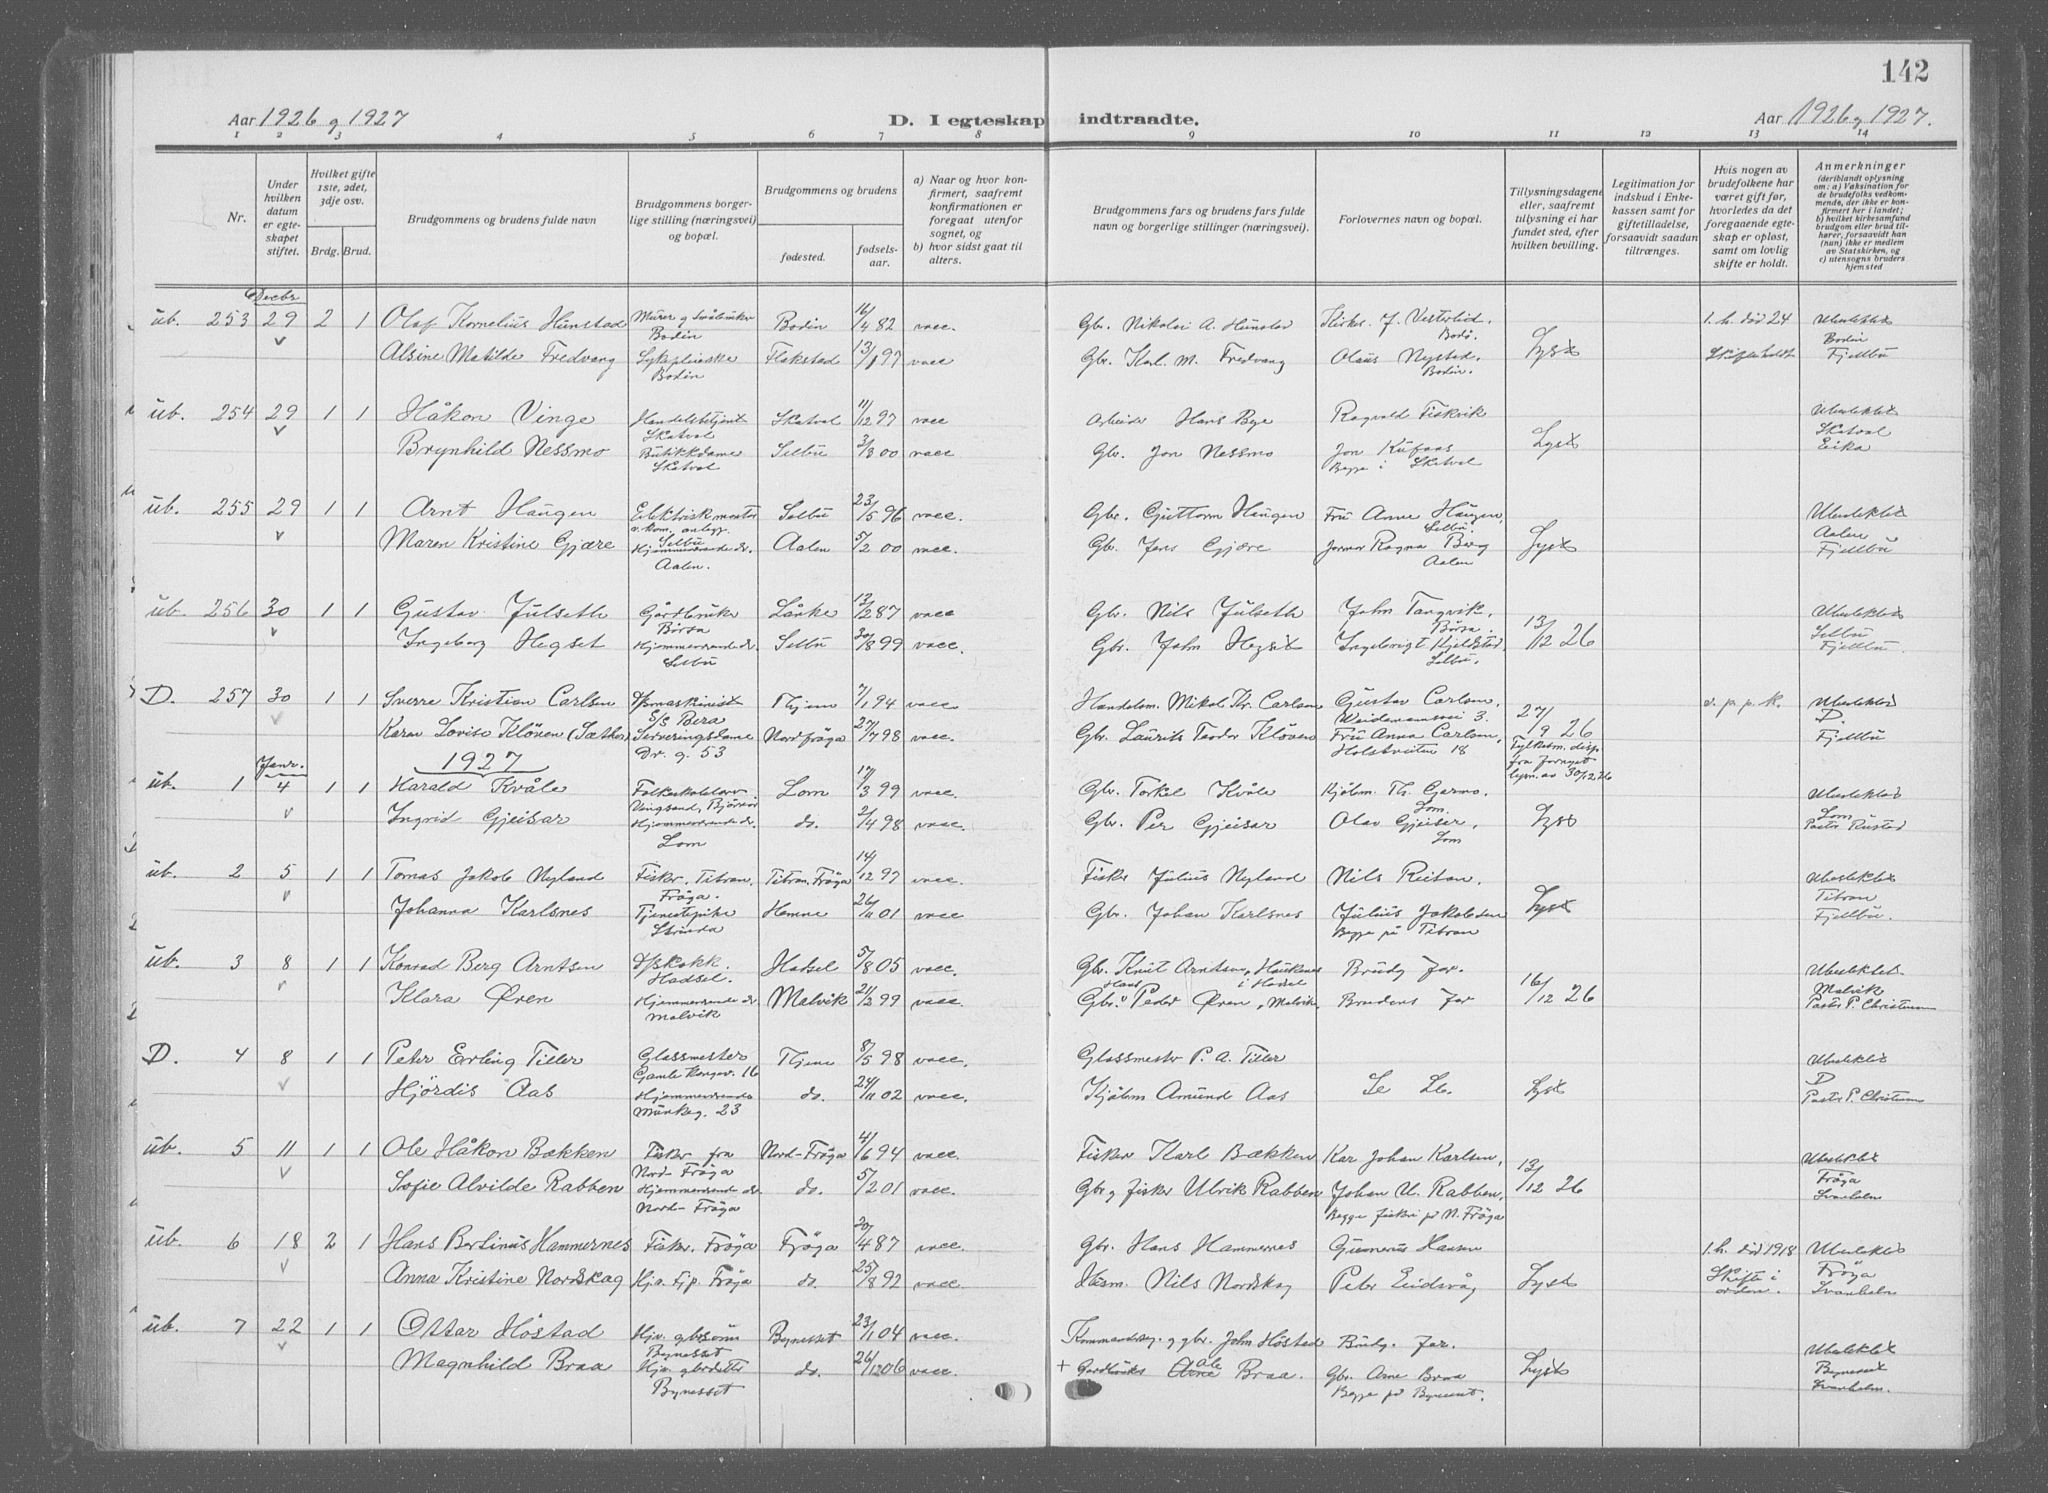 142
Aar 1926 g 1927 D. I egteskap indtraadte. Aar 1926 g 1927.
1 2 3 4 5 6 7 8 9 10 11 12 13 14
Nr.
Under hvilken datum er egteskapet stiftet.
Hvilket gifte 1ste, 2det, 3dje osv.
Brdg. Brud.
Brudgommens og brudens fulde navn
Brudgommens borgerlige stilling (næringsvei) og bopæl.
Brudgommens og brudens
fødested.
fødselsaar.
a) Naar og hvor konfirmert, saafremt konfirmationen er foregaat utenfor sognet, og
b) hvor sidst gaat til alters.
Brudgommens fars og brudens fars fulde navn og borgerlige stillinger (næringsvei).
Forlovernes navn og bopæl.
Tillysningsdagene eller, saafremt tillysning ei har fundet sted, efter hvilken bevilling.
Legitimation for indskud i Enkekassen samt for giftetilladelse, forsaavidt saadan tiltrænges.
Hvis nogen av brudefolkene har været gift før, hvorledes da det foregaaende egteskap er opløst, samt om lovlig skifte er holdt.
Anmerkninger (deriblandt oplysning om: a) Vaksination for de brudefolks vedkommende, der ikke er konfirmert her i landet; b) hvilket kirkesamfund brudgom eller brud tilhører, forsaavidt han (hun) ikke er medlem av Statskirken, og c) utensogns bruders hjemsted
Decbr
üb. 253 29 2 1 Olaf Kornelius Hunstad Murer g Småbruker Bodin Bodin 16/4 82 vacc. Gbr. Nikolai A. Hunstad Kirkes. J. Vesterlid. Bodø. 1. h. død 24 Uberlektet
Alsine Matilde Fredvang Sykepleierske Bodin Flakstad 13/1 97 vacc Gbr. Karl M. Fredvang Olaus Nystad. Bodin. Lyst Skifte holdt Bodin Fjellbu
üb. 254 29 1 1 Håkon Vinge Handelsbetjent Skatval Skatval 11/12 97 vacc Arbeider Hans Bye Ragvald Fiskvik
Brynhild Nessmo Butikkdame Skatval Selbu 3/3 00 vacc Gbr. Jon Nessmo Jon Kufaas Begge i Skatval Lyst Skatval Eika
üb. 255 29 1 1 Arnt Haugen Elektriskmontør v. kom. anlegg Selbu Selbu 23/5 96 vacc. Gbr. Guttorm Haugen Fru Anne Haugen, Selbu.
Maren Kristine Gjære Hjemmeværende dr. Aalen. Aalen 5/2 00 vacc. Gbr. Jens Gjære Jormor Ragna Berg Aalen Lyst Aalen Fjellbu
üb. 256 30 1 1 Gustav Julseth Gårdbruker Börsa Lånke 13/12 87 vacc Gbr. Nils Julseth John Tangvik, Börsa.
Ingeborg Hegset Hjemmeværende dr. Selbu Selbu 30/8 99 vacc. Gbr. John Hegset Ingebrigt Kjelstad, Selbu. 13/12 26 Selbu Fjellbu
D. 257 30 1 1 Sverre Kristian Carlsen D/smaskinist S/S Bera Thjem 7/1 94 vacc. Handelsm. Mikal Kr. Carlsen Gustav Carlsen, Weidemannsvei 3. v. p. p. k.
Karen Lovise Klöven (Sæther) Serveringsdame Dr. g. 53 Nordfröya 27/7 98 vacc. Gbr. Laurits Teodor Klöven Fru Anna Carlsen, Holstveiten 18 27/9 26 Fylkesm. disp. fra fornyet lysn. av 30/12 26 D. Fjellbu
1927
Janr.
üb. 1 4 1 1 Harald Kvåle Folkeskolelærer. Vingsand, Bjørnör Lom 17/3 99 vacc. Gbr. Torkel Kvåle Kjöbm. Th. Garmo. Lom.
Ingrid Gjeisar Hjemmeværende dr. Lom do. 2/4 98 vacc. Gbr. Per Gjeisar Olav Gjeisar, Lom Lyst Lom Pastor Rustad
üb. 2 5 1 1 Tomas Jakob Nyland Fisker. Titran. Fröya. Titran. Fröya 14/12 97 vacc. Fisker Julius Nyland Nils Reitan.
Johanna Karlsnes Tjenestepike Strinda Hemne 26/11 01 vacc Gbr. Johan Karlsnes Julius Jakobsen Begge på Titran Lyst Titran Fjellbu.
üb. 3 8 1 1 Konrad Berg Arntsen D/skokk. Hadsel. Hadsel 5/8 05 vacc. Gbr. Knut Arntsen, Haukenes i Hadsel Brudg. Far.
Klara Øren Hjemmeværende dr. Malvik Malvik 21/2 99 vacc. Gbr. Peder Øren, Malvik. Brudens Far 16/12 26 Malvik Pastor P. Christensen
D. 4 8 1 1 Peter Erling Tiller Glassmester Gamle Kongev. 16 Thjem 8/5 98 vacc. Glassmester P. A. Tiller
Hjördis Aas Hjemmeværende Munkeg. 23 do. 24/11 02 vacc. Kjöbm Amund Aas Se Lb. Lyst D Pastor P. Christensen
üb. 5 11 1 1 Ole Håkon Bækken Fisker fra Nord-Fröya Nord-Fröya 4/6 94 vacc. Fisker Karl Bækken Kar Johan Karlsen,
Sofie Alvilde Rabben Hjemmeværende dr. Nord-Fröya do. 5/2 01 vacc. Gbr g fisker Ulrik Rabben Johan U. Rabben, Begge fiskere på N. Fröya 13/12 26 Fröya Svanholm
üb. 6 18 2 1 Hans Bertinus Hammernes Fisker. Fröya Fröya 20/4 87 vacc. Gbr. Hans Hammernes Gunnerius Hansen 1. h. död 1918
Anna Kristine Nordskag Hjv. tjp. Fröya do. 25/8 92 vacc. Husm. Nils Nordskag Peter Eidsvåg Lyst Skifte i orden. Fröya Svanholm
üb. 7 22 1 1 Ottar Höstad Hjv. gbrsønn Bynesset Bynesset 23/1 04 vacc. Kommandersg. g gbr. John Höstad Brudg. far.
Magnhild Braa Hjv. gbrdatter Bynesset do. 26/12 06 vacc. + Gardbruker Ole Braa. Gbr. Arne Braa Begge på Bynesset. Lyst Bynesset Svanholm.